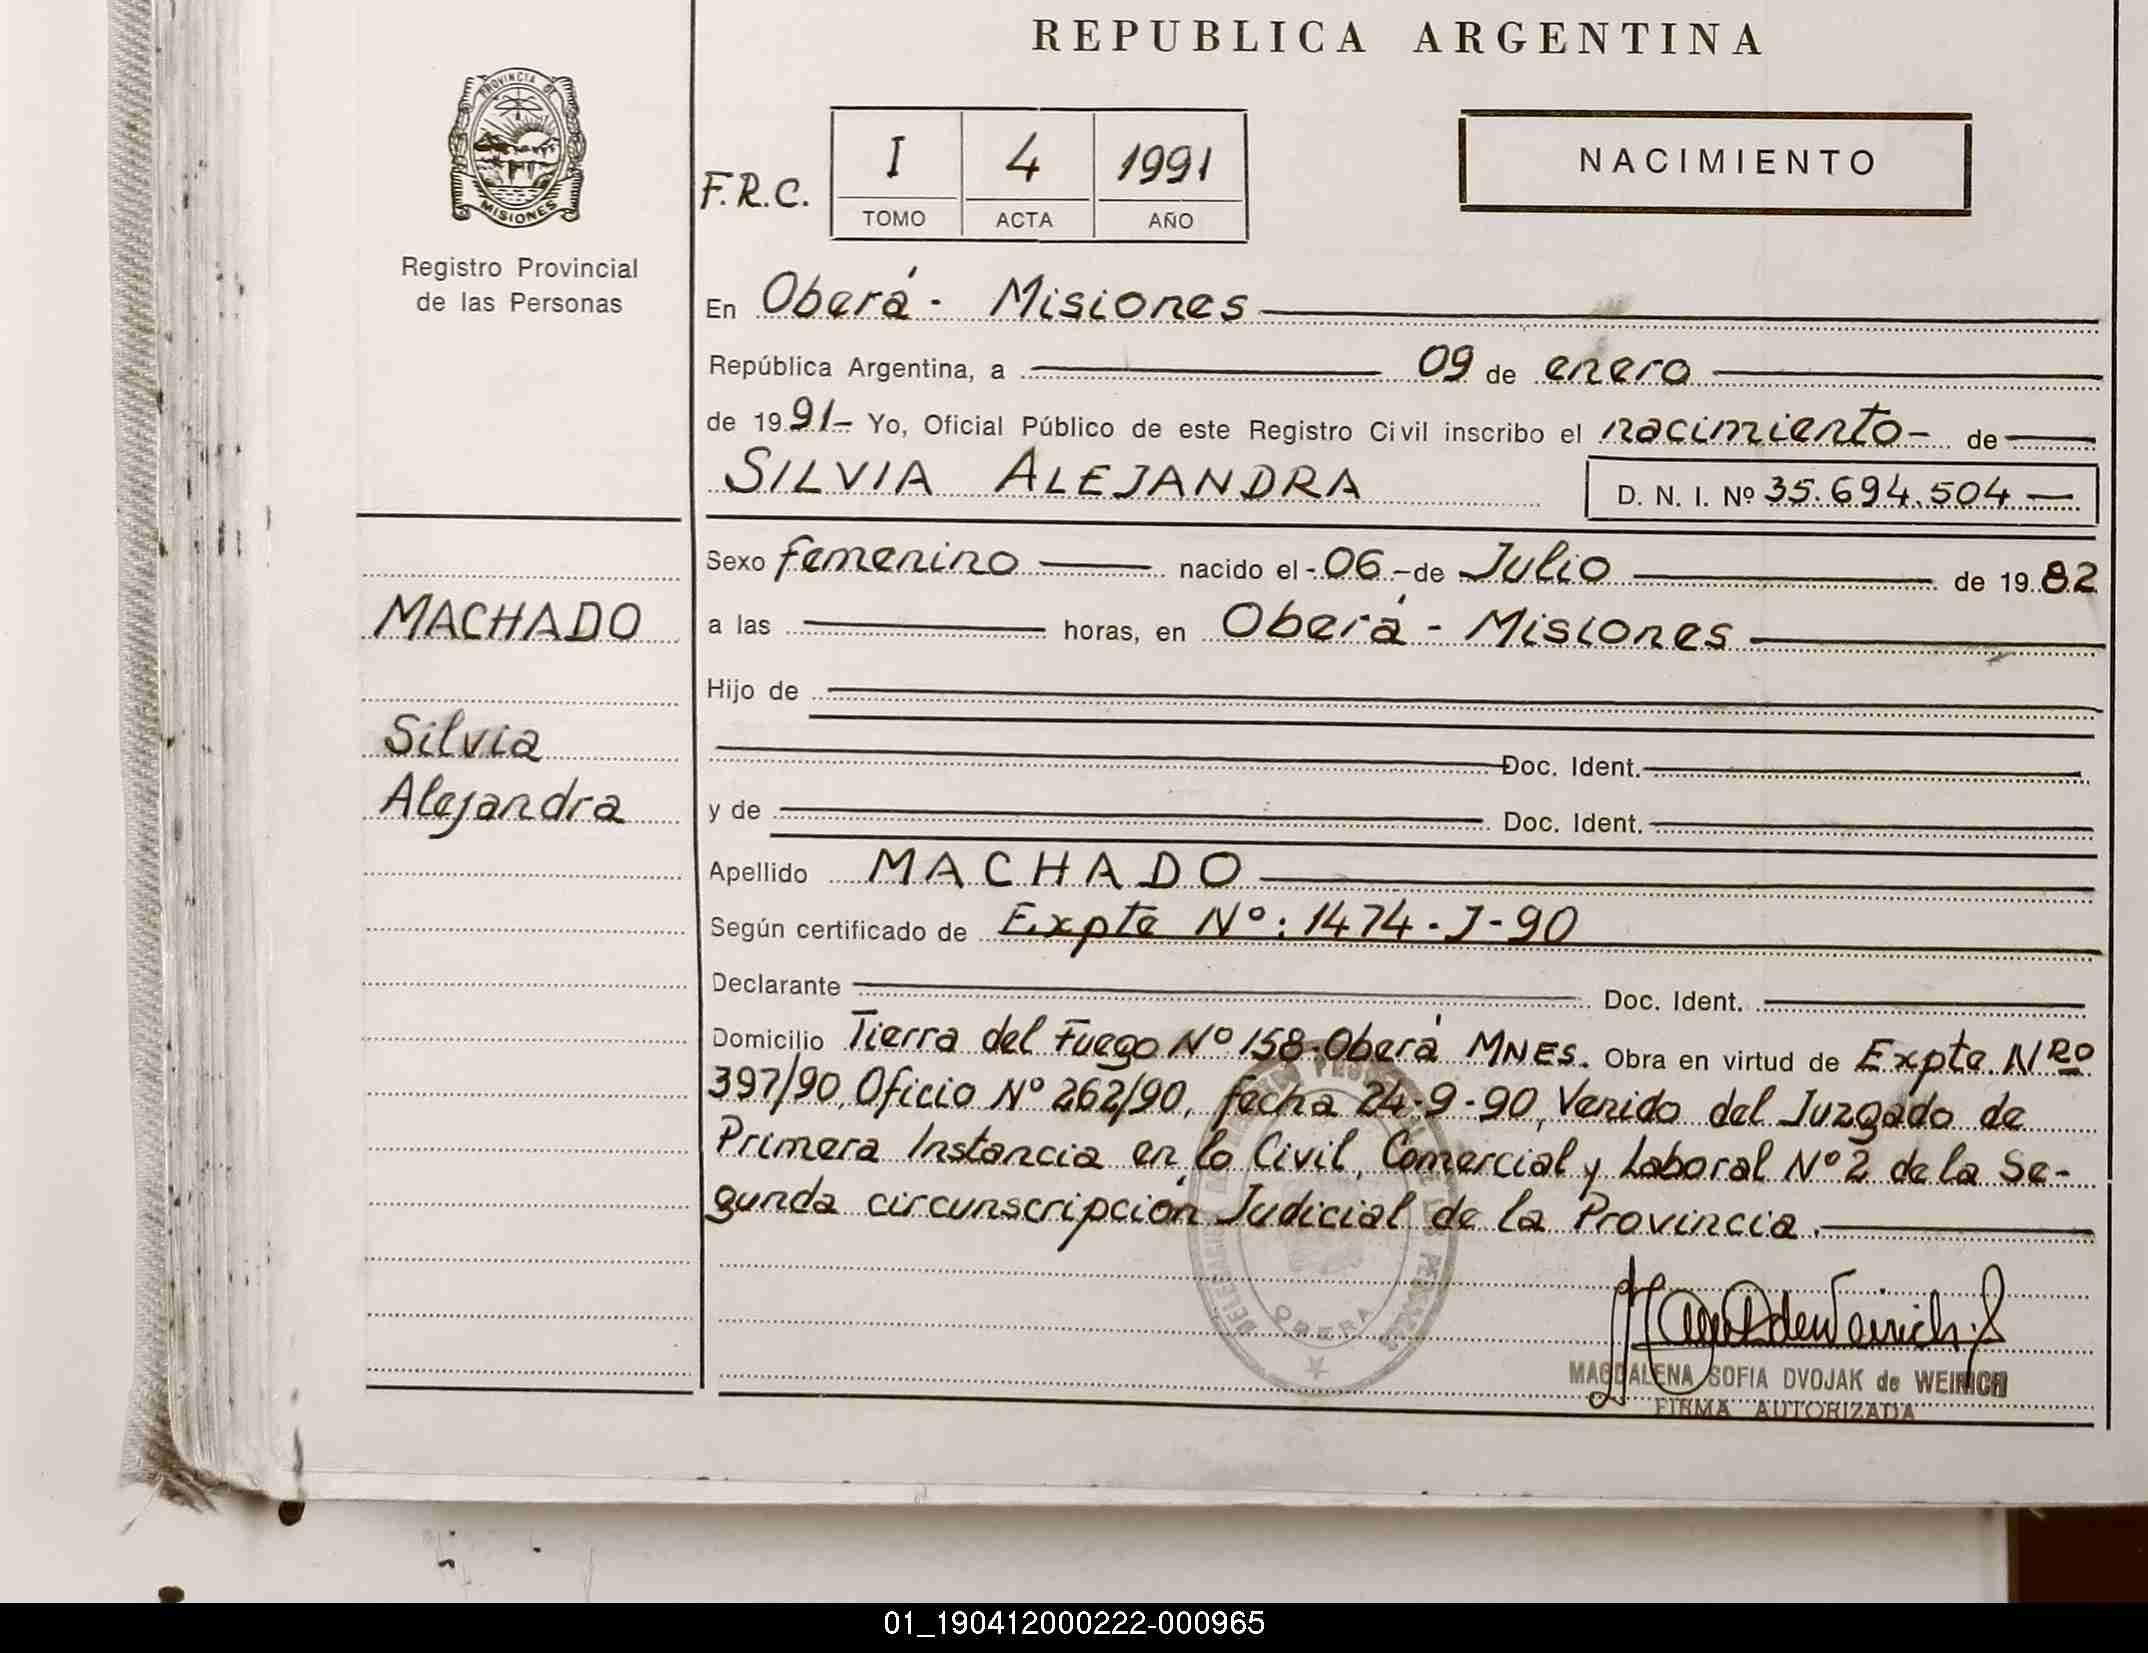 REPUBLICA ARGENTINA
PROVINCIA DE
MISIONES
Registro Provincial
de las Personas
F.R.C.
I 4 1991
TOMO ACTA AÑO
NACIMIENTO
En Oberá - Misiones
República Argentina, a 09 de enero
de 1991- Yo, Oficial Público de este Registro Civil inscribo el nacimiento- de
SILVIA ALEJANDRA D. N. I. Nº 35.694.504
Sexo femenino nacido el - 06 - de Julio de 1982
MACHADO
a las horas, en Oberá - Misiones
Hijo de
Silvia
Doc. Ident.
Alejandra
y de Doc. Ident.
Apellido MACHADO
Según certificado de Expte Nº: 1474-J-90
Declarante Doc. Ident.
Domicilio Tierra del Fuego Nº 158-Oberá MNES. Obra en virtud de Expte. NRO
397/90, Oficio Nº 262/90, fecha 24-9-90, Venido del Juzgado de
Primera Instancia en lo Civil, Comercial y Laboral Nº 2 de la Se-
gunda circunscripción Judicial de la Provincia.
OBERA
MAGDALENA SOFIA DVOJAK de WEIRICH
FIRMA AUTORIZADA
01_190412000222-000965